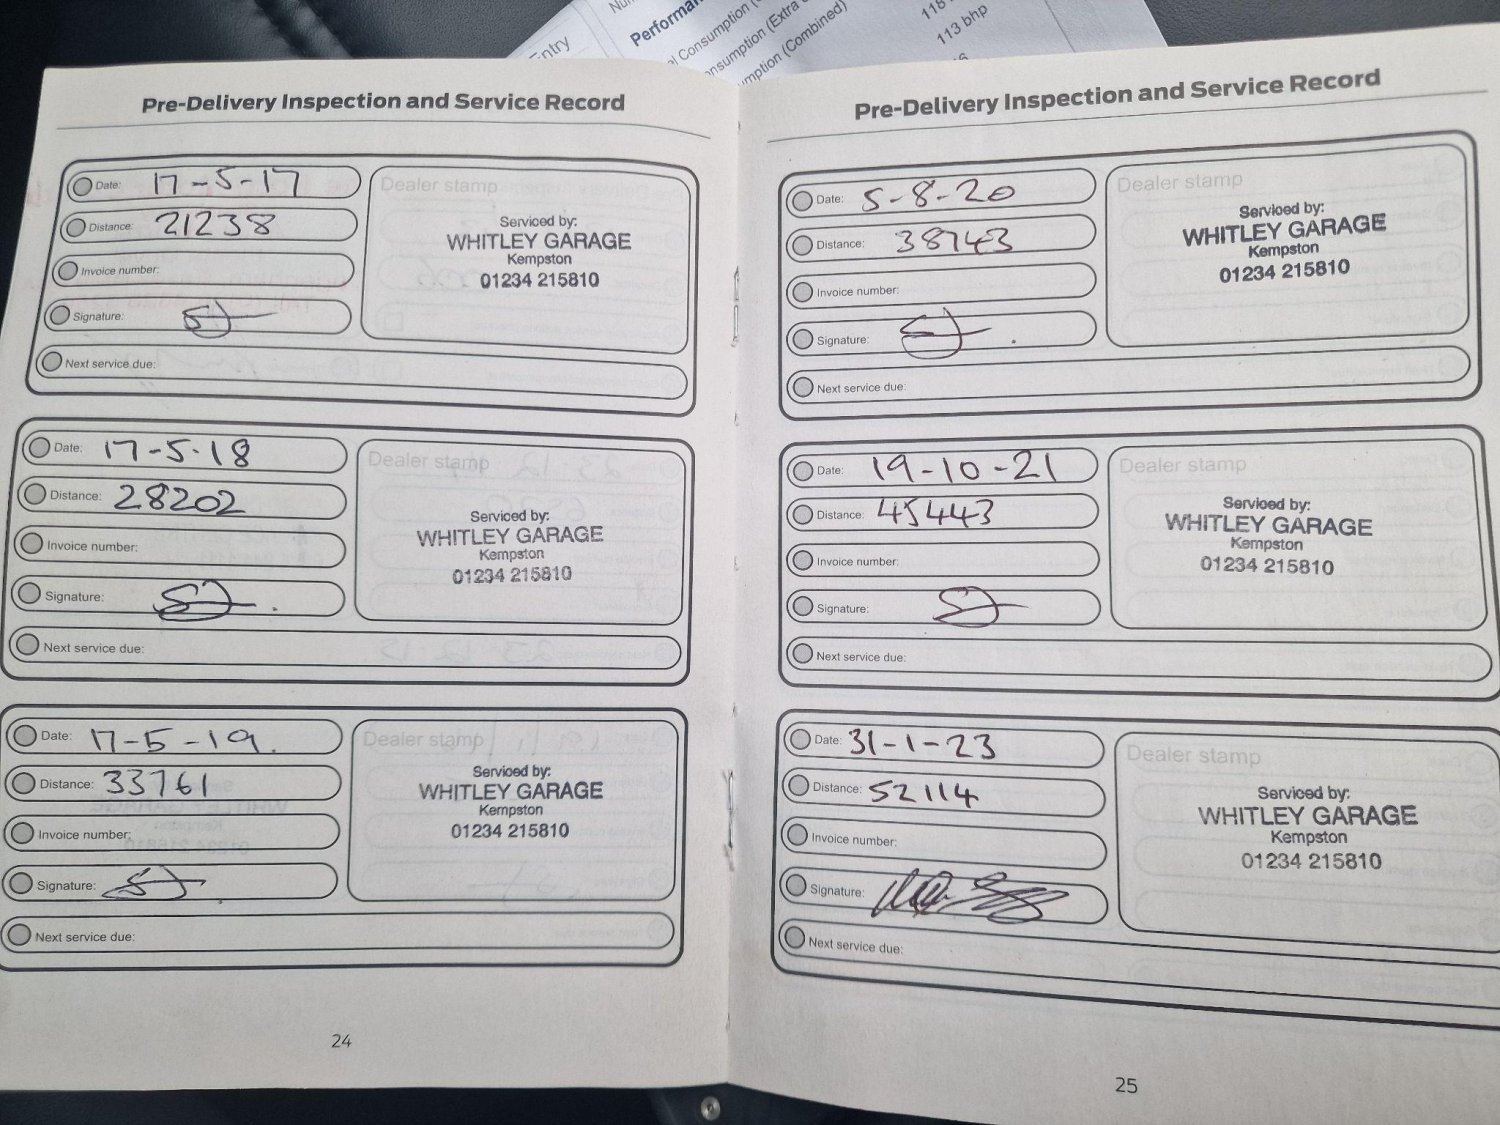 Entry
Performan
Consumption
nsumption (Extra
mption (Combined)
118
113 bhp
Pre-Delivery Inspection and Service Record
Date: 17-5-17
Distance: 21238
Invoice number:
Signature:
Next service due:
Dealer stamp
Serviced by:
WHITLEY GARAGE
Kempston
01234 215810
Date: 17-5-18
Distance: 28202
Invoice number:
Signature:
Next service due:
Dealer stamp
Serviced by:
WHITLEY GARAGE
Kempston
01234 215810
Date: 17-5-19
Distance: 33761
Invoice number:
Signature:
Next service due:
Dealer stamp
Serviced by:
WHITLEY GARAGE
Kempston
01234 215810
24
Pre-Delivery Inspection and Service Record
Date: 5-8-20
Distance: 38743
Invoice number:
Signature:
Next service due:
Dealer stamp
Serviced by:
WHITLEY GARAGE
Kempston
01234 215810
Date: 19-10-21
Distance: 45443
Invoice number:
Signature:
Next service due:
Dealer stamp
Serviced by:
WHITLEY GARAGE
Kempston
01234 215810
Date: 31-1-23
Distance: 52114
Invoice number:
Signature:
Next service due:
Dealer stamp
Serviced by:
WHITLEY GARAGE
Kempston
01234 215810
25